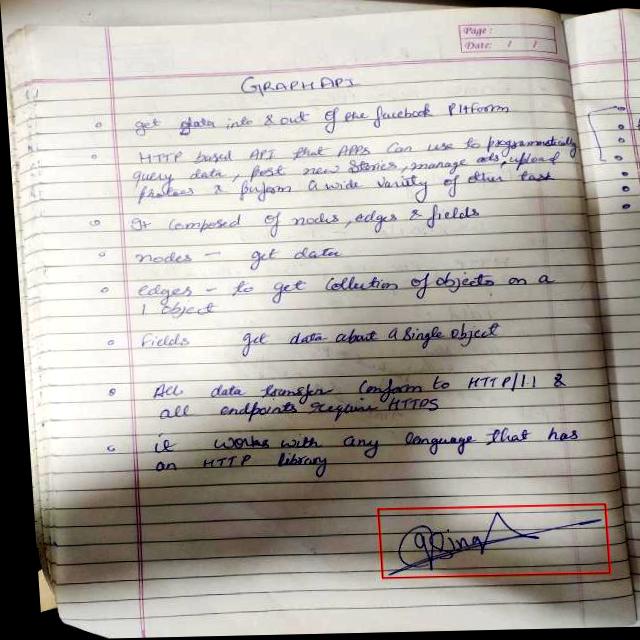 Page:
Date: / /
GRAPH API
get data into & out of the facebook Pltform
HTTP based API that APPs can use to programmatically
query data, post new stories, manage ads, upload
photoes & perform a wide variety of other task
It composed of nodes, edges & fields
nodes - get data
edges - to get collection of objects on a
1 object
Fields get data about a single object
All data transfer conform to HTTP/1.1 &
all endpoints require HTTPS
it works with any language that has
an HTTP library